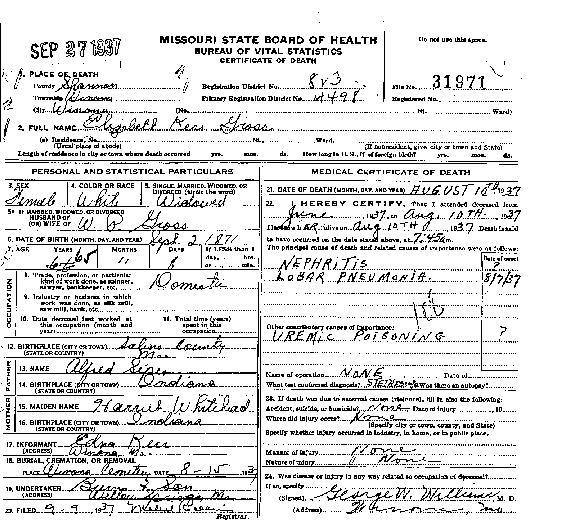 SEP 27 1937
MISSOURI STATE BOARD OF HEALTH
BUREAU OF VITAL STATISTICS
CERTIFICATE OF DEATH
Do not use this space.
1. PLACE OF DEATH
County Shannon Registration District No. 813 File No. 31971
Township Winona Primary Registration District No. Registered No.
City Winona (No. St. Ward)
2. FULL NAME Elizabeth Kess Gross
(a) Residence, No. St. Ward.
(Usual place of abode) (If nonresident, give city or town and State)
Length of residence in city or town where death occurred yrs. mos. ds. How long in U. S., if of foreign birth? yrs. mos. ds.
PERSONAL AND STATISTICAL PARTICULARS
3. SEX 4. COLOR OR RACE 5. SINGLE, MARRIED, WIDOWED, OR DIVORCED (write the word)
Female White Widowed
5A. IF MARRIED, WIDOWED, OR DIVORCED
HUSBAND OF
(OR) WIFE OF W Gross
6. DATE OF BIRTH (MONTH, DAY, AND YEAR) Sept. 2 1871
7. AGE YEARS MONTHS DAYS If LESS than 1 day, hrs. or min.
65 11 8
OCCUPATION
8. Trade, profession, or particular kind of work done, as spinner, sawyer, bookkeeper, etc. Domestic
9. Industry or business in which work was done, as silk mill, saw mill, bank, etc.
10. Date deceased last worked at this occupation (month and year)
11. Total time (years) spent in this occupation
12. BIRTHPLACE (CITY OR TOWN) Saline County
(STATE OR COUNTRY) Mo.
FATHER
13. NAME Alfred
14. BIRTHPLACE (CITY OR TOWN) Indiana
(STATE OR COUNTRY)
MOTHER
15. MAIDEN NAME Harriet Whitehead
16. BIRTHPLACE (CITY OR TOWN) Indiana
(STATE OR COUNTRY)
17. INFORMANT Edna Kess
(ADDRESS) Winona Mo.
18. BURIAL, CREMATION, OR REMOVAL
PLACE Winona Cemetery DATE 8-15 193
19. UNDERTAKER Burns & Son
(ADDRESS) Willow Springs Mo
20. FILED 9-9 1937
Registrar.
MEDICAL CERTIFICATE OF DEATH
21. DATE OF DEATH (MONTH, DAY, AND YEAR) AUGUST 10th 1937
22. I HEREBY CERTIFY, That I attended deceased from
June 1937, to Aug. 10TH 1937
I last saw her alive on Aug 10TH 1937 Death is said
to have occurred on the date stated above, at 7:45 a.m.
The principal cause of death and related causes of importance were as follows:
Date of onset
NEPHRITIS ?
LOBAR PNEUMONIA. 8/7/37
Other contributory causes of importance:
UREMIC POISONING ?
Name of operation NONE Date of
What test confirmed diagnosis? Was there an autopsy?
23. If death was due to external causes (violence), fill in also the following:
Accident, suicide, or homicide? None Date of injury 19
Where did injury occur? None
(Specify city or town, county, and State)
Specify whether injury occurred in industry, in home, or in public place.
Manner of injury None
Nature of injury None
24. Was disease or injury in any way related to occupation of deceased?
If so, specify
(Signed) George W. Williams M. D.
(Address) Winona, Mo